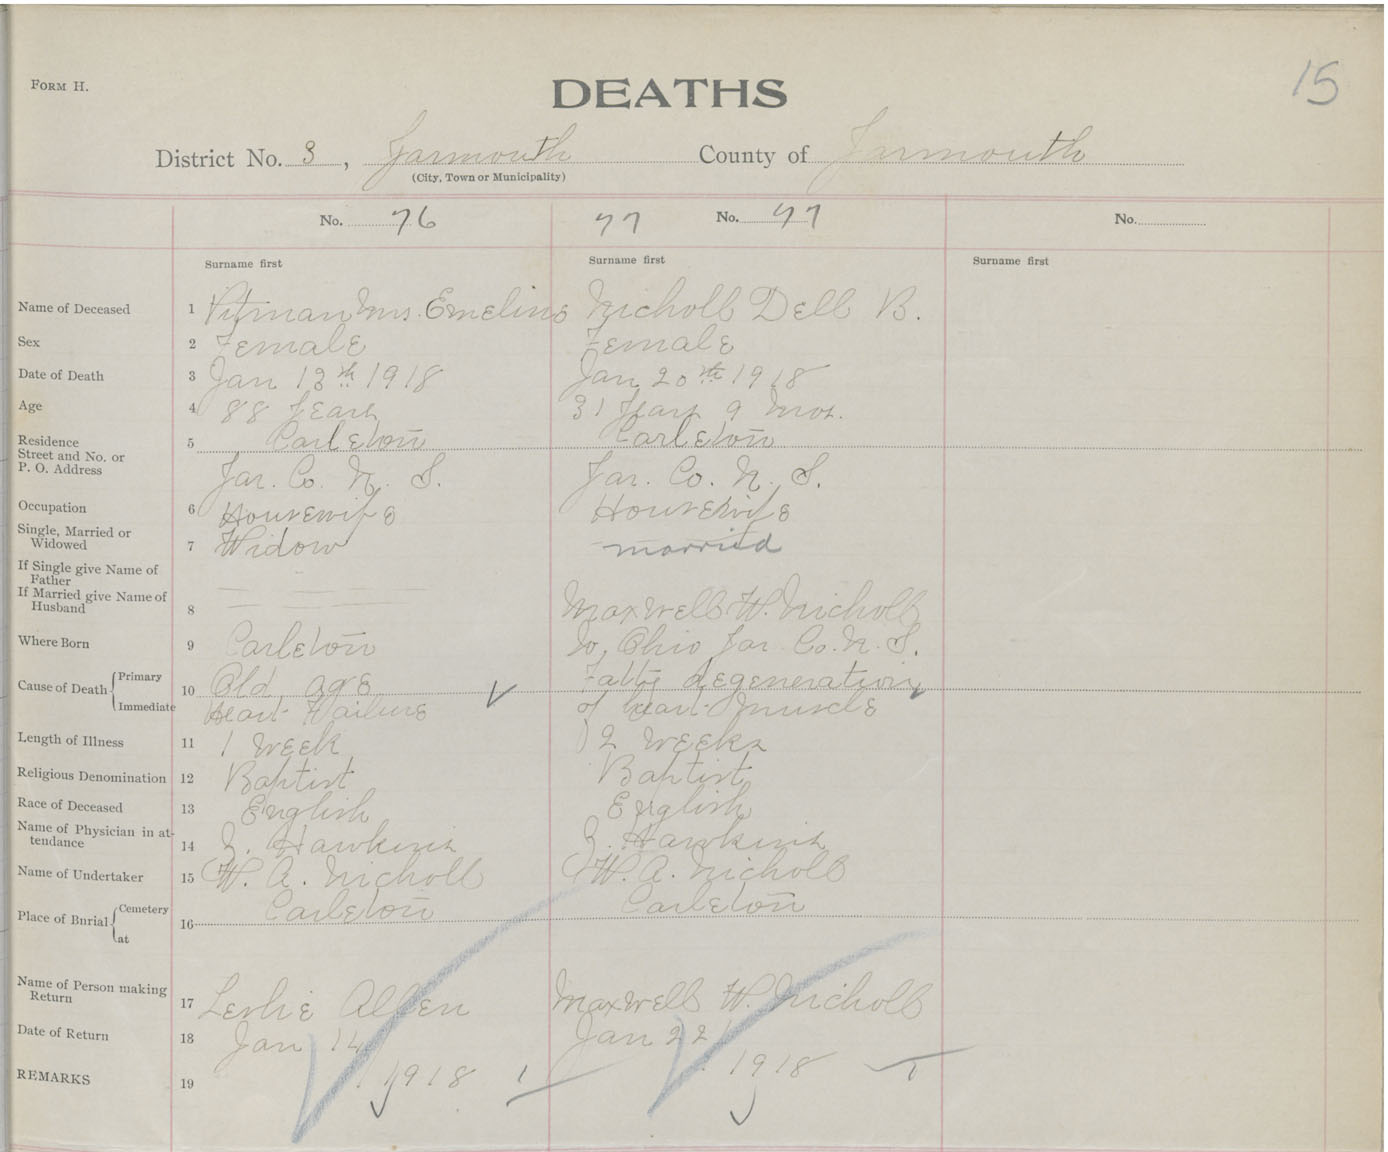 FORM H.
DEATHS
15
District No. 3, Yarmouth County of Yarmouth
(City, Town or Municipality)
No. 76 77 No. 77 No.
Surname first Surname first Surname first
Name of Deceased 1 Pitman Mrs. Emeline Nicholl Dell B.
Sex 2 Female Female
Date of Death 3 Jan 13th 1918 Jan 20th 1918
Age 4 88 Years 31 Years 9 Mos.
Residence 5 Carleton Carleton
Street and No. or
P. O. Address Yar. Co. N. S. Yar. Co. N. S.
Occupation 6 Housewife Housewife
Single, Married or
Widowed 7 Widow married
If Single give Name of
Father
If Married give Name of
Husband 8 Maxwell W. Nicholl
Where Born 9 Carleton Ohio Yar. Co. N. S.
Cause of Death Primary 10 Old age Fatty degeneration
Immediate Heart Failure of heart muscle
Length of Illness 11 1 Week 2 Weeks
Religious Denomination 12 Baptist Baptist
Race of Deceased 13 English English
Name of Physician in at-
tendance 14 Z. Hawkins Z. Hawkins
Name of Undertaker 15 W. A. Nicholl W. A. Nicholl
Place of Burial Cemetery 16 Carleton Carleton
at
Name of Person making
Return 17 Leslie Allen Maxwell W. Nicholl
Date of Return 18 Jan 14 Jan 22
REMARKS 19 1918 1918